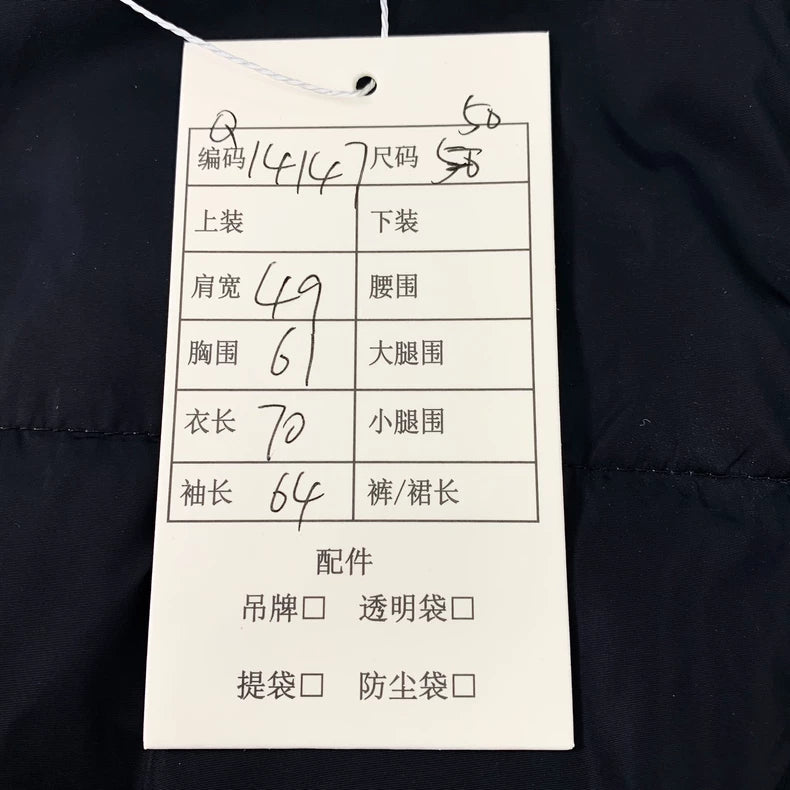 Q 50
编码 14147 尺码
上装 下装
肩宽 49 腰围
胸围 61 大腿围
衣长 70 小腿围
袖长 64 裤/裙长
配件
吊牌□ 透明袋□
提袋□ 防尘袋□